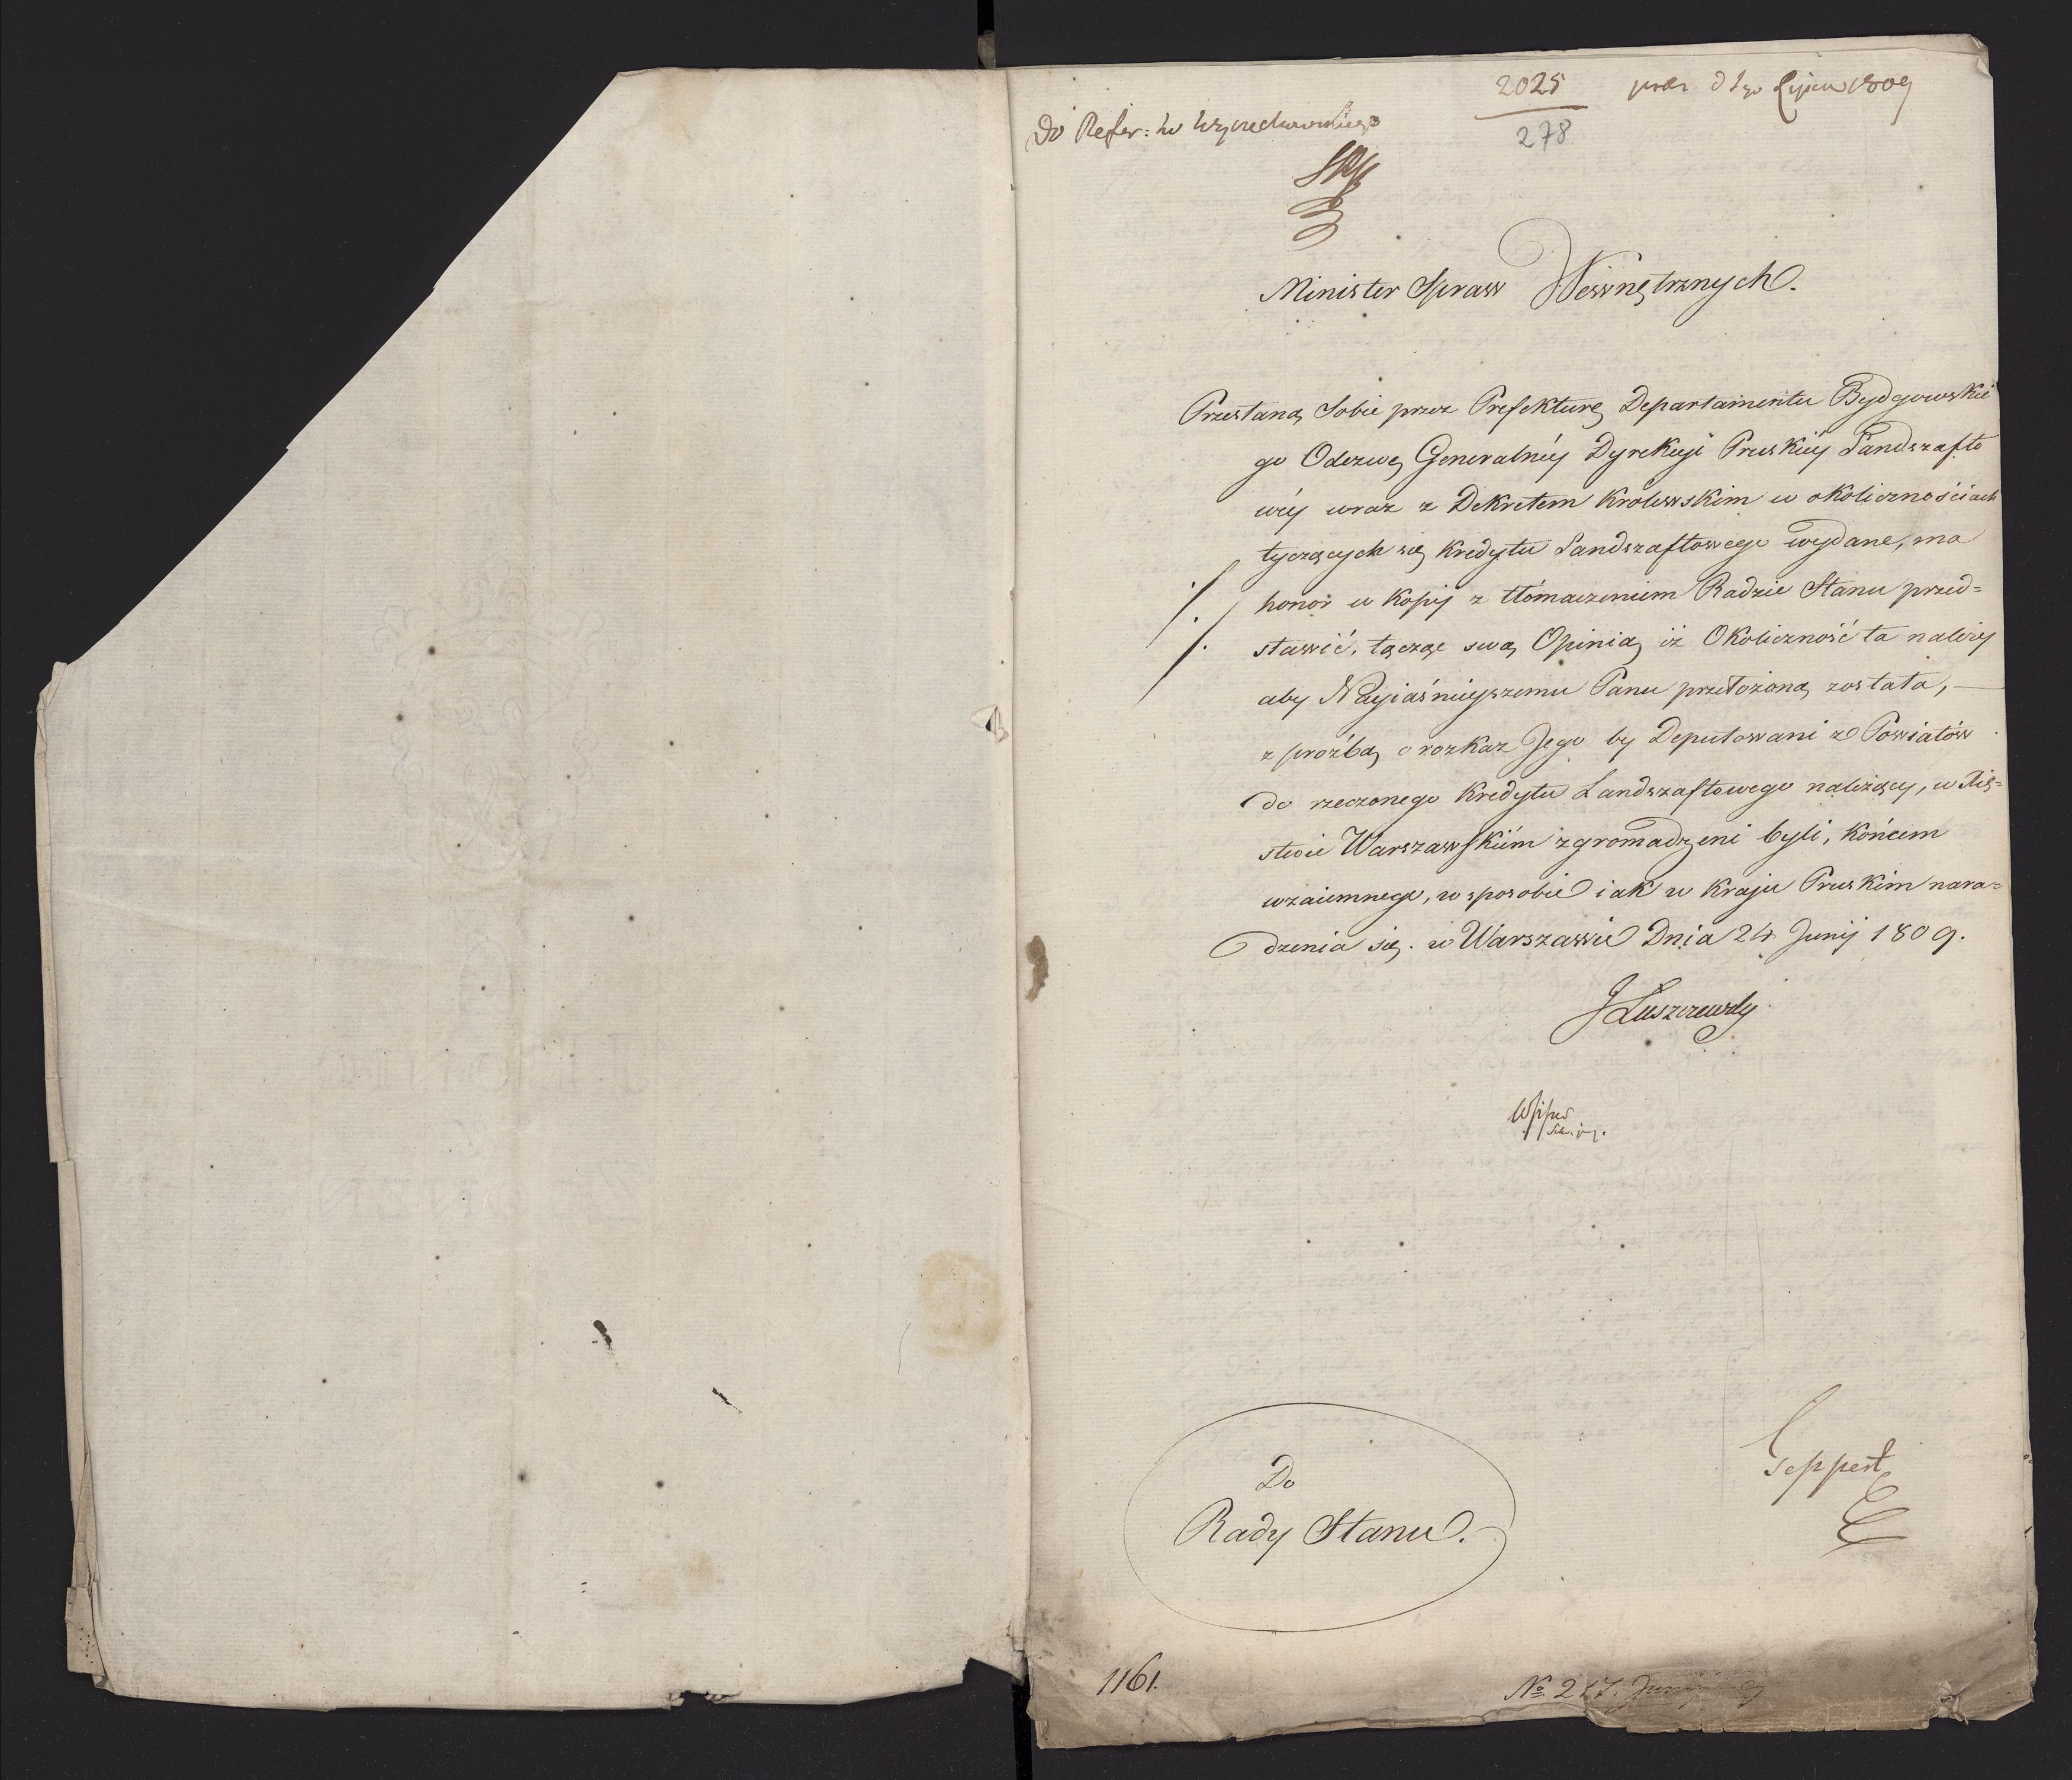 2025 Lipca 1809
Do Refer:
278
Minister Spraw Wewnętrznych.
Przesłaną Sobie przez Prefekturę Departamentu Bydgowskie
go Odezwę Generalnéy Dyrekcyi Pruskiéy Landszafto
wéy wraz z Dekretem Królewskim w okolicznościach
tyczących się kredytu Landszaftowego wydane, ma
honor w Kopij z tłómaczeniem Radzie Stanu przed=
stawić, łącząc swą Opinią iż Okoliczność ta należy
aby Nayiaśnieyszemu Panu przełożoną została, —
z prożbą o rozkaz Jego by Deputowani z Powiatów
do rzeczonego Kredytu Landszaftowego należący, w Xię=
stwie Warszawskiém zgromadzeni byli, końcem
wzaiemnego, w sposobie iak w Kraju Pruskim nara=
dzenia się. w Warszawie Dnia 24 Junij 1809.
J Łuszczewski
Geppert
Do
Rady Stanu.
1161.
№ 217. Junij